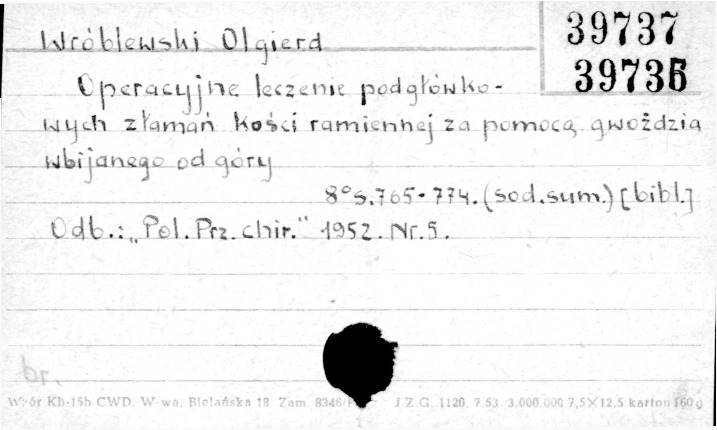 Wróblewski Olgierd
39737
39736
Operacyjne leczenie podgłówko-
wych złamań kości ramiennej za pomocą gwoździa
wbijanego od góry
8° s. 765-774. (sod. sum.) [bibl.]
Odb.: „Pol. Prz. chir." 1952. Nr. 5.
dr.
Wzór Kb-15b CWD. W-wa, Bielańska 18 Zam. 8346 J.Z.G. 1120, 7.53 3.000.000 7,5×12,5 karton 160 g